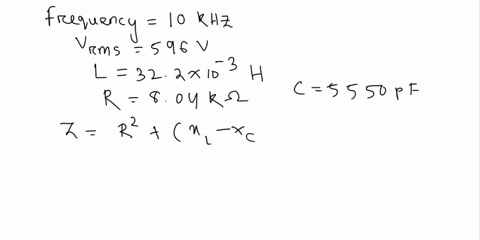 frequency = 10 kHz
Vrms = 596 V
L = 32.2 × 10⁻³ H
R = 8.04 kΩ
C = 5550 pF
Z = R² + (x_L - x_C